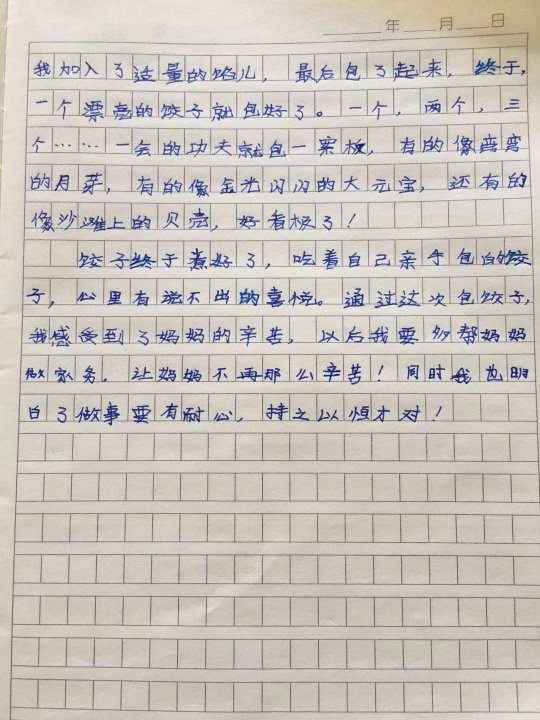 年 月 日
我加入了适量的馅儿，最后包了起来，终于，
一个漂亮的饺子就包好了。一个，两个，三
个……一会的功夫就包一案板，有的像弯弯
的月芽，有的像金光闪闪的大元宝，还有的
像沙滩上的贝壳，好看极了！
饺子终于煮好了，吃着自己亲手包的饺
子，心里有说不出的喜悦。通过这次包饺子，
我感受到了妈妈的辛苦，以后我要多帮妈妈
做家务，让妈妈不再那么辛苦！同时我也明
白了做事要有耐心，持之以恒才对！